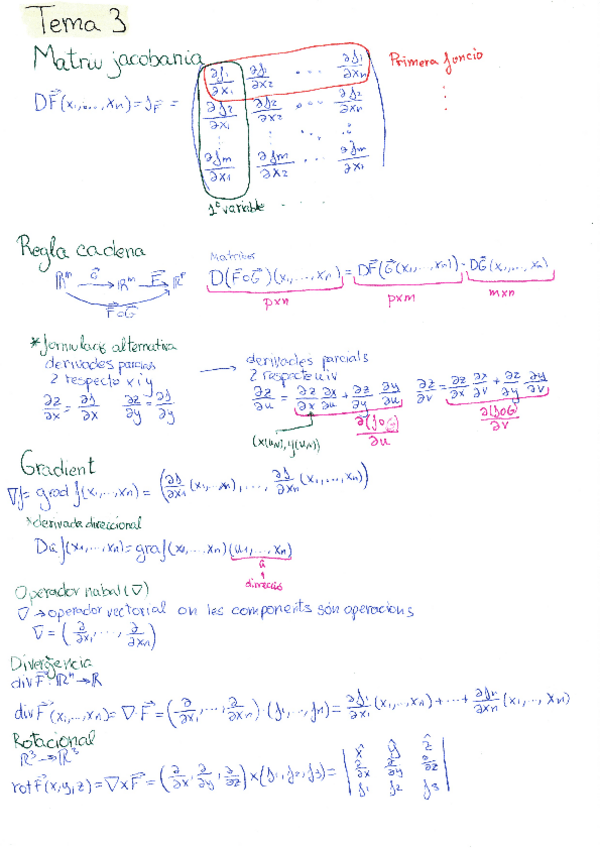 Tema 3
Matriu jacobania
DF⃗(x₁,...,xₙ) = J_F⃗ = ( ∂f₁/∂x₁ ∂f₁/∂x₂ ... ∂f₁/∂xₙ Primera funcio
∂f₂/∂x₁ ∂f₂/∂x₂ ... ∂f₂/∂xₙ ⋮
⋮ ⋮ ⋱ ⋮
∂fm/∂x₁ ∂fm/∂x₂ ... ∂fm/∂x₁ )
1ª variable ....
Regla cadena
Matrius
ℝⁿ →G⃗ ℝᵐ →F⃗ ℝᵖ D(F⃗∘G⃗)(x₁,...,xₙ) = DF⃗(G⃗(x₁,...,xₙ)) · DG⃗(x₁,...,xₙ)
F⃗∘G⃗ p×n p×m m×n
*formulació alternativa
derivades parcials → derivades parcials
z respecto x i y z respecte u i v
∂z/∂x = ∂f/∂x ∂z/∂y = ∂f/∂y ∂z/∂u = ∂z/∂x ∂x/∂u + ∂z/∂y ∂y/∂u ∂z/∂v = ∂z/∂x ∂x/∂v + ∂z/∂y ∂y/∂v
(x(u,v), y(u,v)) ∂(f∘G)/∂u ∂(f∘G)/∂v
Gradient
∇f = grad f(x₁,...,xₙ) = (∂f/∂x₁ (x₁,...,xₙ), ..., ∂f/∂xₙ (x₁,...,xₙ))
*derivada direccional
Dūf(x₁,...,xₙ) = graf(x₁,...xₙ)(u₁,...,xₙ)
ū
direcció
Operador nabal (∇)
∇ → operador vectorial on les components són operacions
∇ = (∂/∂x₁, ..., ∂/∂xₙ)
Divergència
div F⃗: ℝⁿ → ℝ
div F⃗(x₁,...,xₙ) = ∇·F⃗ = (∂/∂x₁, ..., ∂/∂xₙ)·(f₁,...,fₙ) = ∂f₁/∂x₁ (x₁,...,xₙ) + ... + ∂fₙ/∂xₙ (x₁,...,xₙ)
Rotacional
ℝ³ → ℝ³
rot F⃗(x,y,z) = ∇×F⃗ = (∂/∂x, ∂/∂y, ∂/∂z) × (f₁, f₂, f₃) = | x̂ ŷ ẑ
∂/∂x ∂/∂y ∂/∂z
f₁ f₂ f₃ |